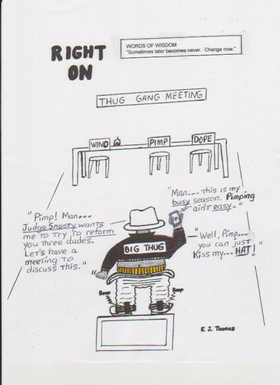 RIGHT
ON
WORDS OF WISDOM
"Sometimes later becomes never. Change now."
THUG GANG MEETING
WINO
PIMP
DOPE
"Man... This is my
busy season. Pimping
ain't easy."
"Pimp! Man...
Judge Snooty wants
me to try to reform
you three dudes.
Let's have a
meeting to
discuss this."
BIG THUG
"Well, Pimp...
you can just
kiss my... HAT!"
E. J. Thomas